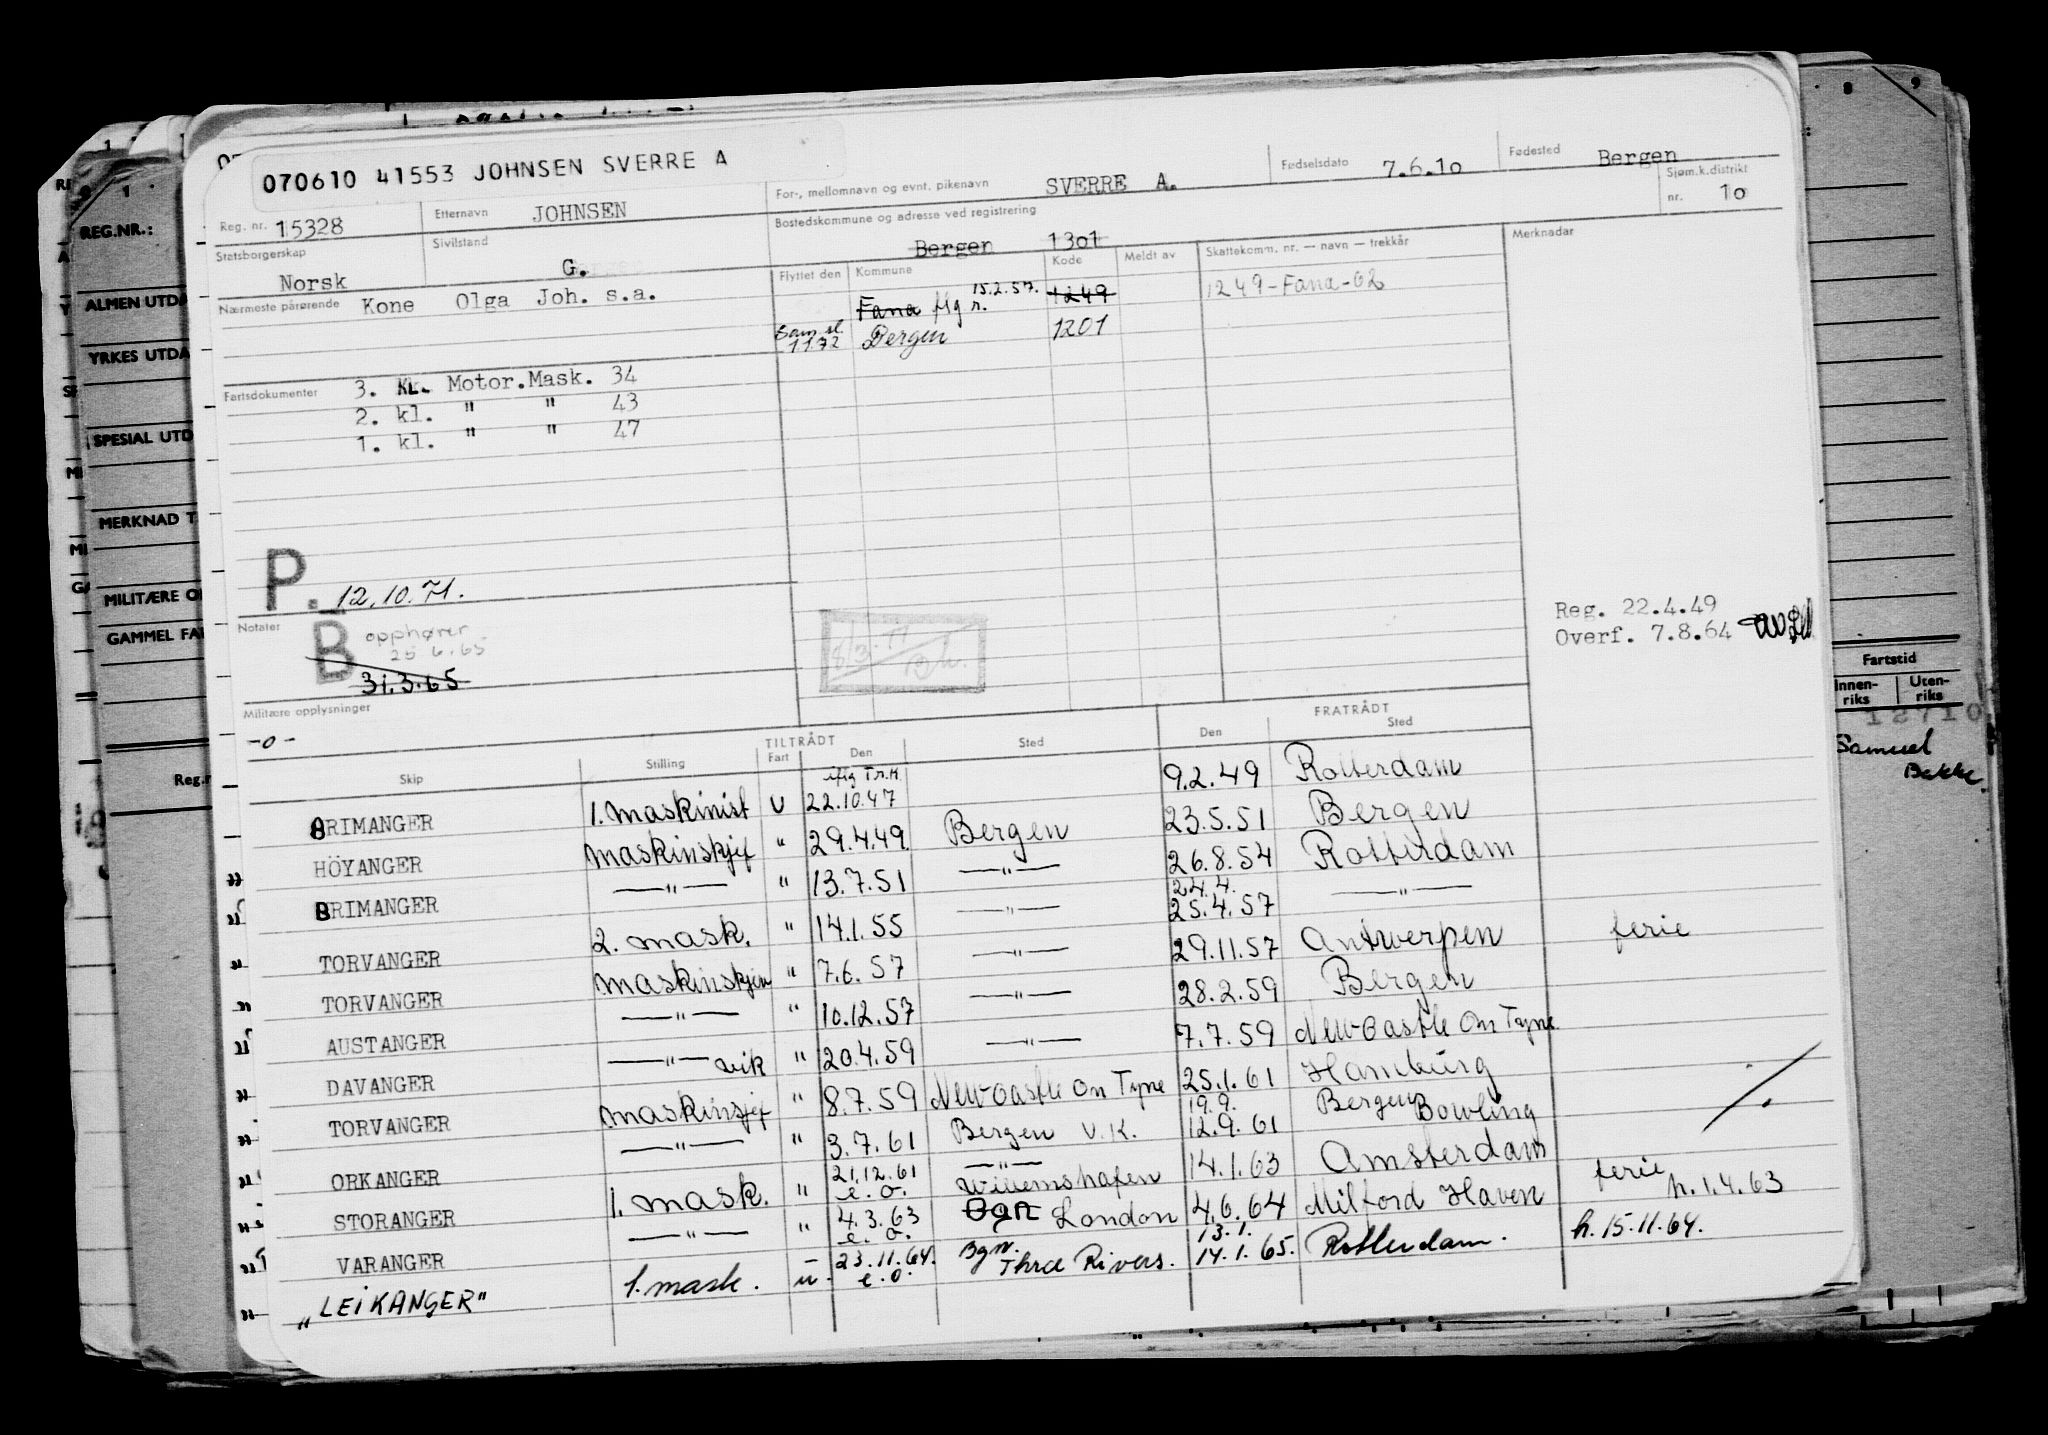 070610 41553 JOHNSEN SVERRE A
Reg. nr. 15328 Etternavn JOHNSEN For-, mellomnavn og evnt. pikenavn SVERRE A. Fødselsdato 7.6.1o Fødested Bergen
Statsborgerskap Norsk Sivilstand G. Bostedskommune og adresse ved registrering Bergen 13o1 Sjøm.k.distrikt nr. 1o
Nærmeste pårørende Kone Olga Joh. s.a.
Flyttet den Kommune Kode Meldt av Skattekomm. nr. — navn — trekkår Merknadar
Fana flg r. 15.2.57. 1249 1249-Fana-02
Sam.sl. 1.1.72 Bergen 1201
Fartsdokumenter 3. KL. Motor.Mask. 34
2. kl. " " 43
1. kl. " " 47
P. 12.10.71.
Notater
B opphører 25.6.65
31.3.65
8/3-77
Reg. 22.4.49
Overf. 7.8.64
Militære opplysninger
-o-
TILTRÅDT FRATRÅDT
Skip Stilling Fart Den Sted Den Sted
BRIMANGER 1. maskinist U iflg T.r.K. 22.10.47 9.2.49 Rotterdam
HÖYANGER maskinskjef " 29.4.49. Bergen 23.5.51 Bergen
BRIMANGER —"— " 13.7.51 —"— 26.8.54 Rotterdam
TORVANGER 2. mask. " 14.1.55 —"— 24.4. 25.4.57 —"—
TORVANGER maskinskjen " 7.6.57 —"— 29.11.57 Antwerpen ferie
AUSTANGER —"— " 10.12.57 —"— 28.2.59 Bergen
DAVANGER —"— vik " 20.4.59 —"— 7.7.59 Newcastle On Tyne
TORVANGER maskinsjef " 8.7.59 Newcastle On Tyne 25.1.61 Hamburg
ORKANGER —"— " 3.7.61 Bergen V.K. 19.9. 12.9.61 Bergen Bowling
STORANGER 1. mask. " 21.12.61 e.o. —"— Willemshafen 14.1.63 Amsterdam ferie
VARANGER —"— " 4.3.63 e.o. Bgn London 4.6.64 Milford Haven h.1.4.63
"LEIKANGER" 1. mask. u. 23.11.64. e.o. Bgn. Three Rivers. 13.1. 14.1.65. Rotterdam. h.15.11.64.
REG.NR.:
ALMEN UTDA
YRKES UTDA
SPESIAL UTD
MERKNAD T
MILITÆRE O
GAMMEL FA
Reg.n
8 9
Fartstid
Innen-riks Uten-riks
12710
Samuel
Bakke.